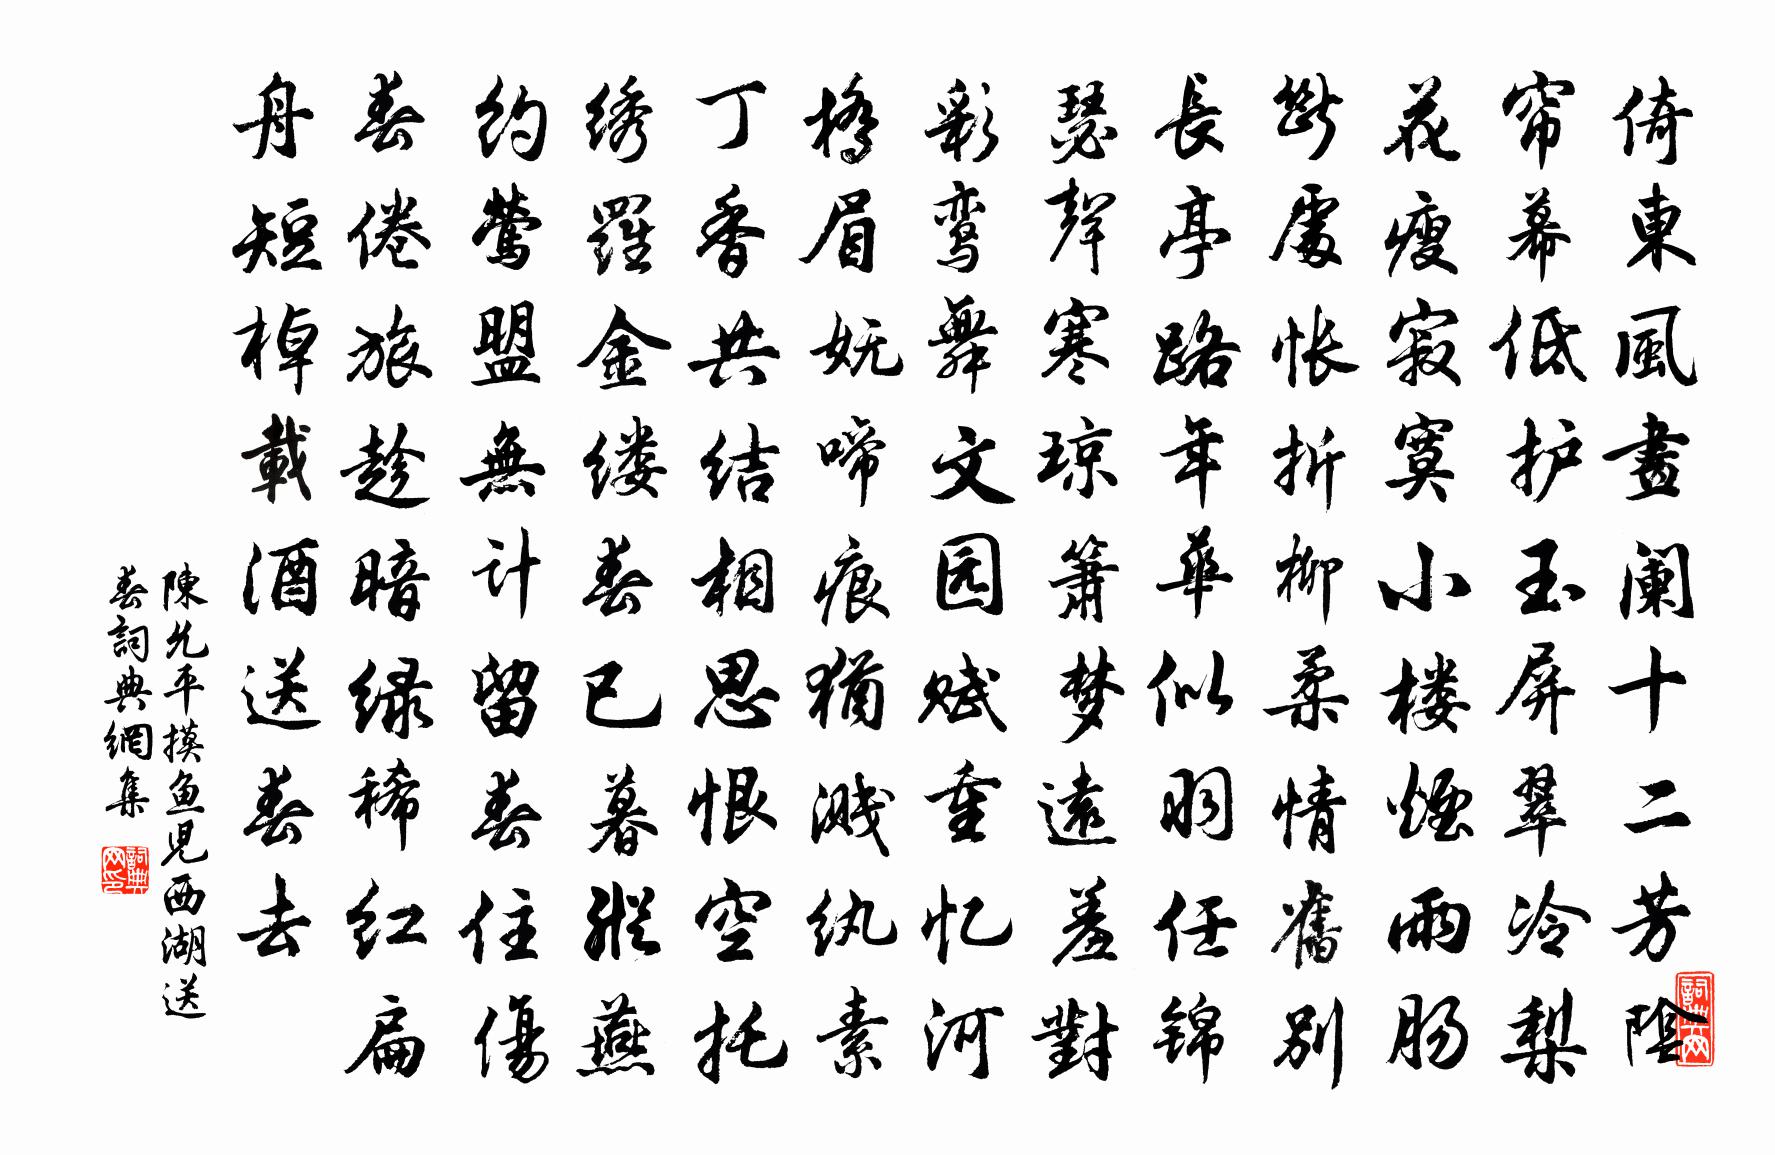 倚東風畫阑十二芳阴
帘幕低护玉屏翠冷梨
花瘦寂寞小楼煙雨肠
斷處怅折柳柔情舊别
長亭路年華似羽任锦
瑟聲寒琼簫梦遠羞對
彩鸾舞文园赋重忆河
橋眉妩啼痕猶溅纨素
丁香共结相思恨空托
绣羅金缕春已暮縱燕
约鶯盟無计留春住傷
春倦旅趁暗绿稀红扁
舟短棹載酒送春去
陳允平摸鱼児西湖送
春詞典網集
詞典网印
詞典网